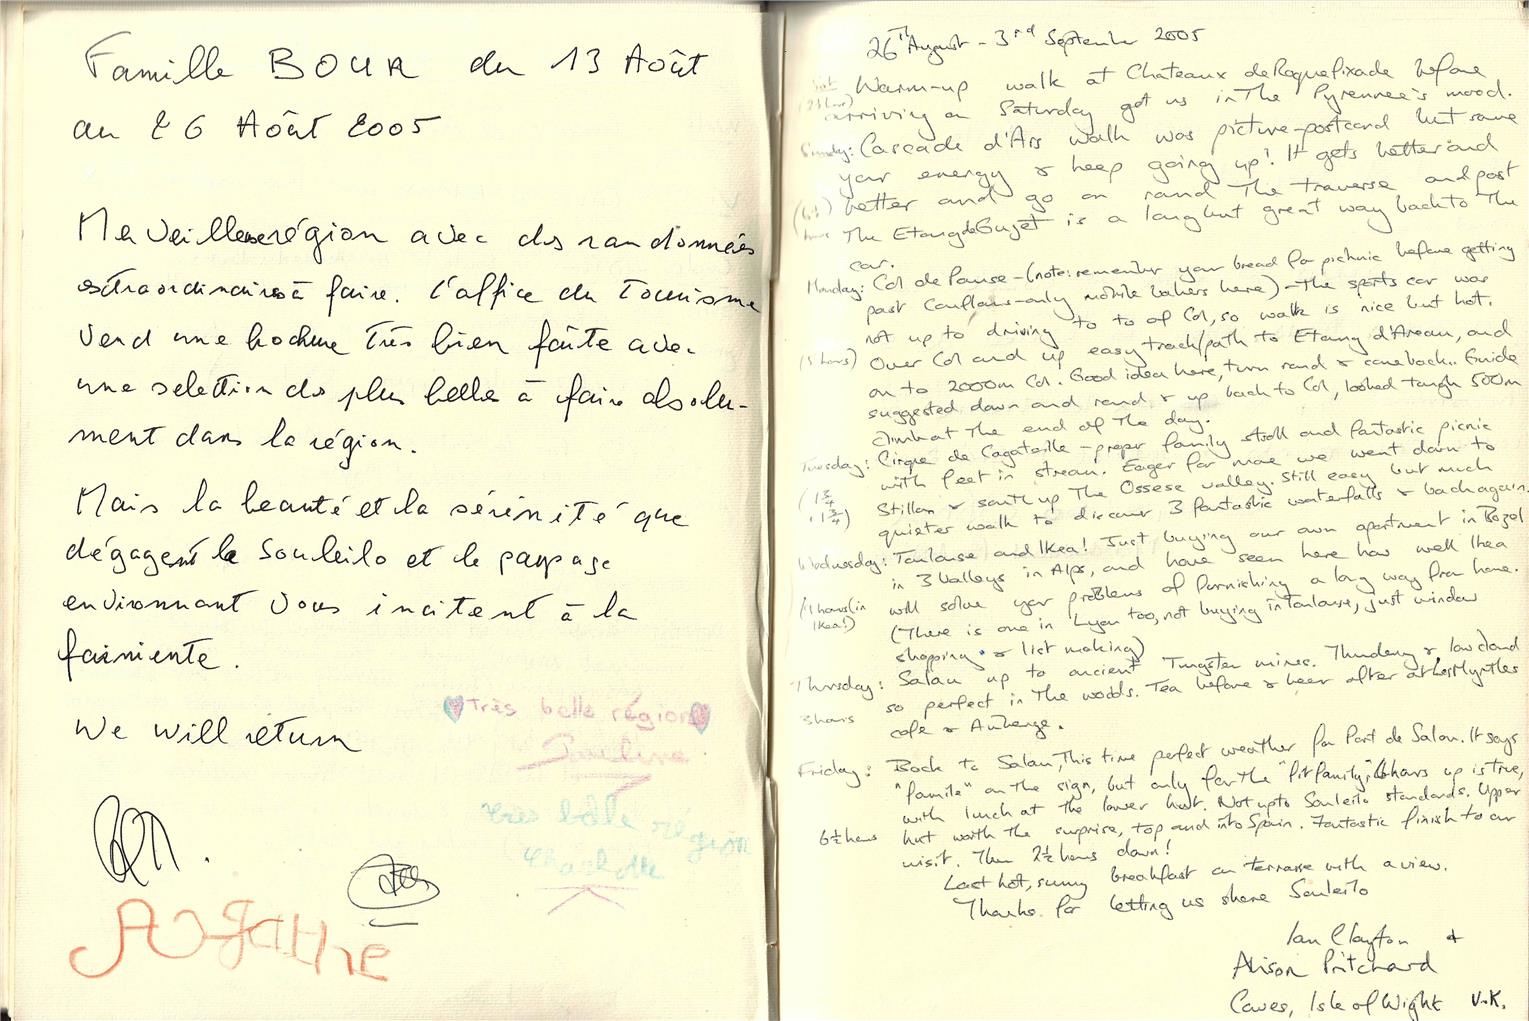 Famille BOUR du 13 Août
au 26 Août 2005
Merveilleuse région avec des randonnées
extraordinaires à faire. L'office du Tourisme
vend une brochure très bien faite avec
une selection des plus belles à faire absolu-
ment dans la région.
Mais la beauté et la sérénité que
dégagent le Souleilo et le paysage
environnant vous incitent à la
fainiente.
We will return
Très belle région
Pauline
très bèle région
Charlotte
AGATHE
26th August - 3rd September 2005
Sat Warm-up walk at Chateaux de Roquefixade before
(2½ hours) arriving on Saturday got us in The Pyrennee's mood.
Sunday: Cascade d'Ars walk was picture-postcard but save
your energy & keep going up! It gets better and
better and go on round The traverse and past
hours The Etang de Guzet is a long but great way back to The
car.
Monday: Col de Pause - (note: remember your bread for picknic before getting
past Couflens - only mobile bakers here) - The sports car was
not up to driving to to of Col, so walk is nice but hot.
(5 hours) Over Col and up easy track/path to Etang d'Areau, and
on to 2000m Col. Good idea here, turn round & come back.. Guide
suggested down and round & up back to Col, looked tough 500m
climb at The end of The day.
Tuesday: Cirque de Cagateille - proper family stroll and fantastic picnic
with feet in stream. Eager for more we went down to
(1¾ Stillon & south up The Ossese valley. Still easy but much
+1¾) quieter walk to discover 3 fantastic waterfalls & back again.
Wednesday: Toulouse and Ikea! Just buying our own apartment in Bozel
in 3 Valleys in Alps, and have seen here how well Ikea
(1 hours (in will solve your problems of furnishing a long way from home.
Ikea!) (There is one in Lyon too, not buying in Toulouse, just window
shopping & list making)
Thursday: Salau up to ancient Tungsten mines. Thundery & low cloud
so perfect in The woods. Tea before & beer after at Les Myrtles
3 hours cafe & Auberge.
Friday: Back to Salau, This time perfect weather for Port de Salau. It says
"famile" on the sign, but only for the "fit family", 4 hours up is true,
with lunch at the lower hut. Not upto Souleilo standards. Upper
6½ hours hut worth the surprise, top and into Spain. Fantastic finish to our
visit. Then 2½ hours down!
Last hot, sunny breakfast on terrace with a view.
Thanks for letting us share Souleilo
Ian Clayton &
Alison Pritchard
Cowes, Isle of Wight U.K.